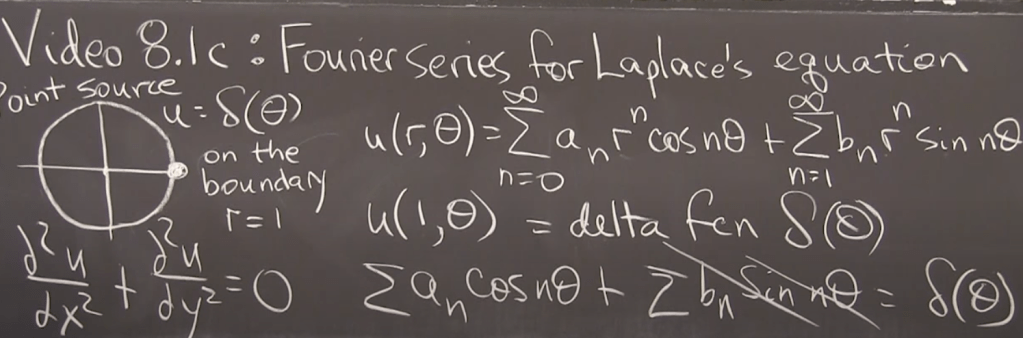 Video 8.1c : Fourier series for Laplace's equation
Point source
u = δ(θ)
on the
boundary
r = 1
∂²u/∂x² + ∂²u/∂y² = 0
u(r,θ) = ∑_{n=0}^{∞} aₙ rⁿ cos nθ + ∑_{n=1}^{∞} bₙ rⁿ sin nθ
u(1,θ) = delta fcn δ(θ)
∑ aₙ cos nθ + ∑ bₙ sin nθ = δ(θ)